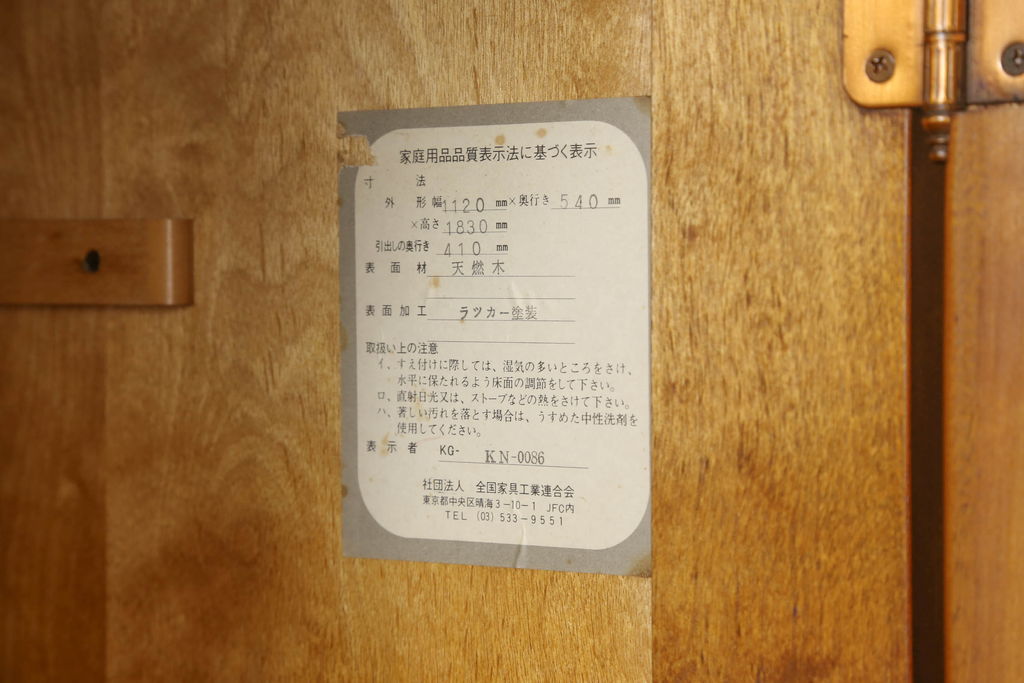 家庭用品品質表示法に基づく表示
寸法
外形幅1120mm×奥行き540mm
×高さ1830mm
引出しの奥行き410mm
表面材 天燃木
表面加工 ラツカー塗装
取扱い上の注意
イ、すえ付けに際しては、湿気の多いところをさけ、
水平に保たれるよう床面の調節をして下さい。
ロ、直射日光又は、ストーブなどの熱をさけて下さい。
ハ、著しい汚れを落とす場合は、うすめた中性洗剤を
使用してください。
表示者 KG- KN-0086
社団法人 全国家具工業連合会
東京都中央区晴海3-10-1 JFC内
TEL (03) 533-9551